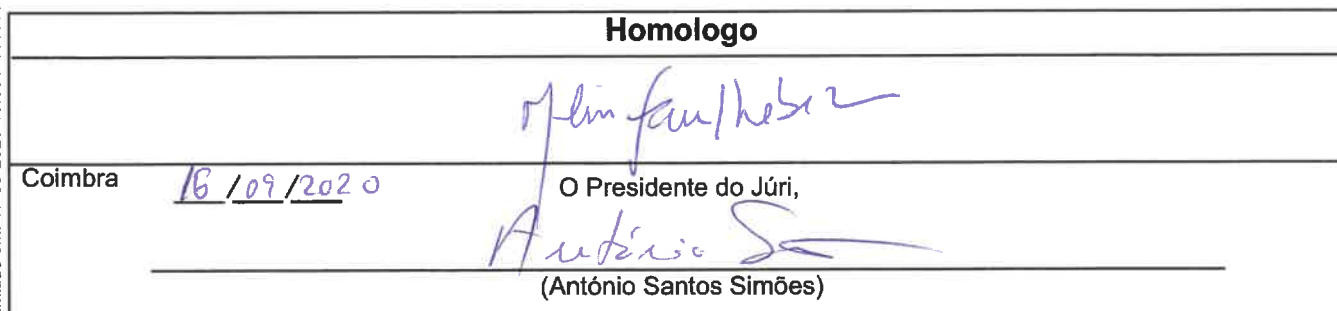 Homologo
Coimbra 16/09/2020 O Presidente do Júri,
António S
(António Santos Simões)